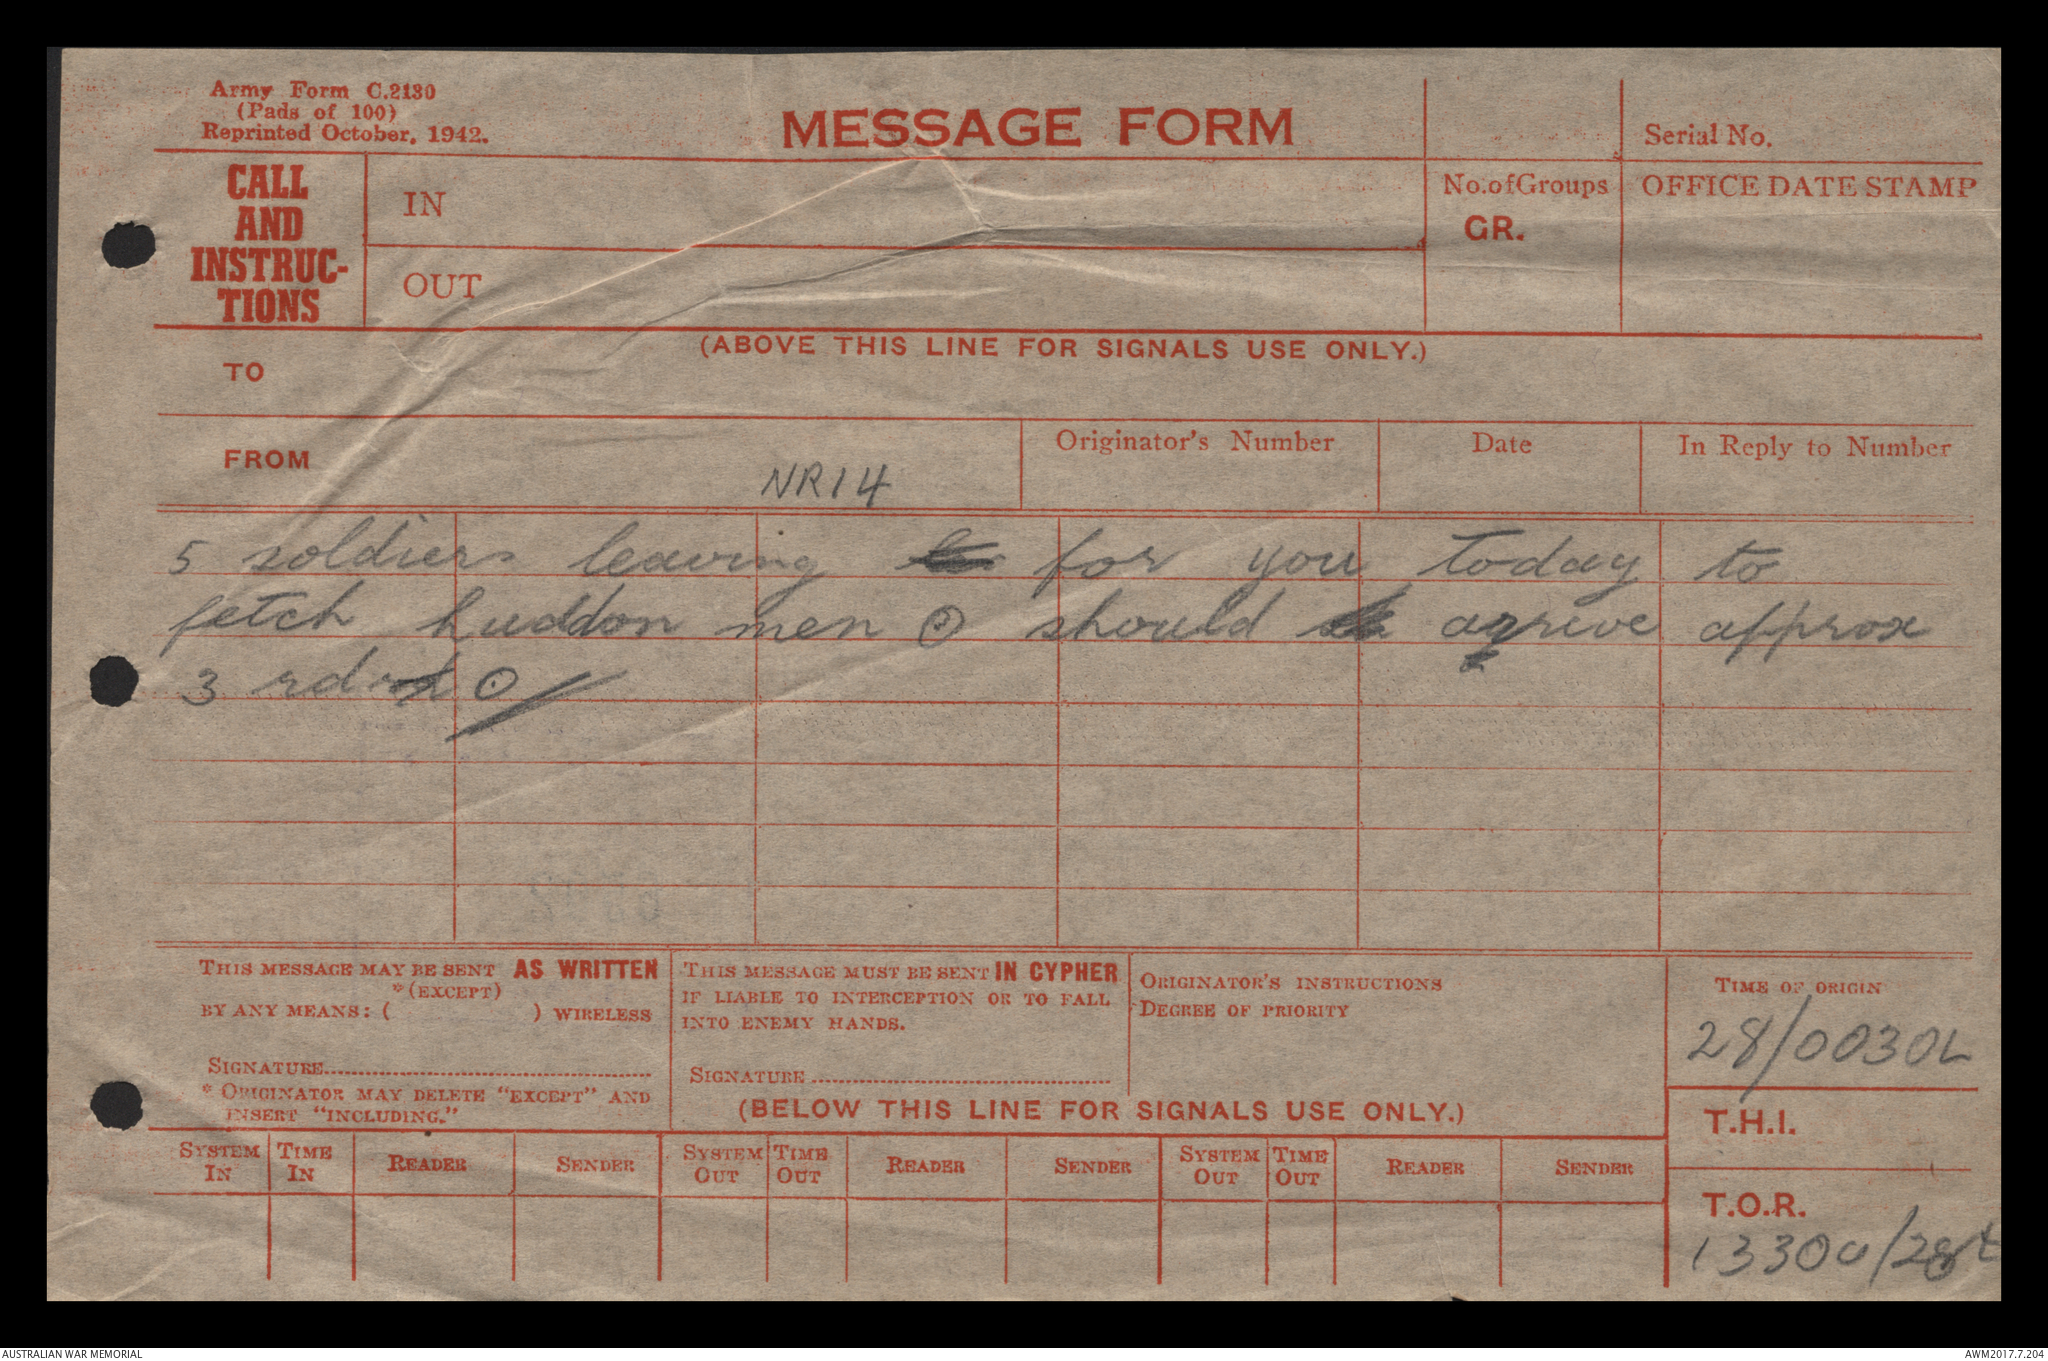 Army Form C.2130
(Pads of 100)
Reprinted October, 1942.
MESSAGE FORM
Serial No.
CALL
AND
INSTRUC-
TIONS
IN
OUT
No. of Groups
GR.
OFFICE DATE STAMP
(ABOVE THIS LINE FOR SIGNALS USE ONLY.)
TO
FROM
NR14
Originator's Number
Date
In Reply to Number
5 soldiers leaving for you today to
fetch huddon men ⊙ should arrive approx
3 rd ⊙
THIS MESSAGE MAY BE SENT AS WRITTEN
*(EXCEPT)
BY ANY MEANS: ( ) WIRELESS
SIGNATURE
* ORIGINATOR MAY DELETE "EXCEPT" AND
INSERT "INCLUDING."
THIS MESSAGE MUST BE SENT IN CYPHER
IF LIABLE TO INTERCEPTION OR TO FALL
INTO ENEMY HANDS.
SIGNATURE
ORIGINATOR'S INSTRUCTIONS
DEGREE OF PRIORITY
TIME OF ORIGIN
28/0030L
(BELOW THIS LINE FOR SIGNALS USE ONLY.)
T.H.I.
SYSTEM IN TIME IN READER SENDER SYSTEM OUT TIME OUT READER SENDER SYSTEM OUT TIME OUT READER SENDER
T.O.R.
AUSTRALIAN WAR MEMORIAL
AWM2017.7.204